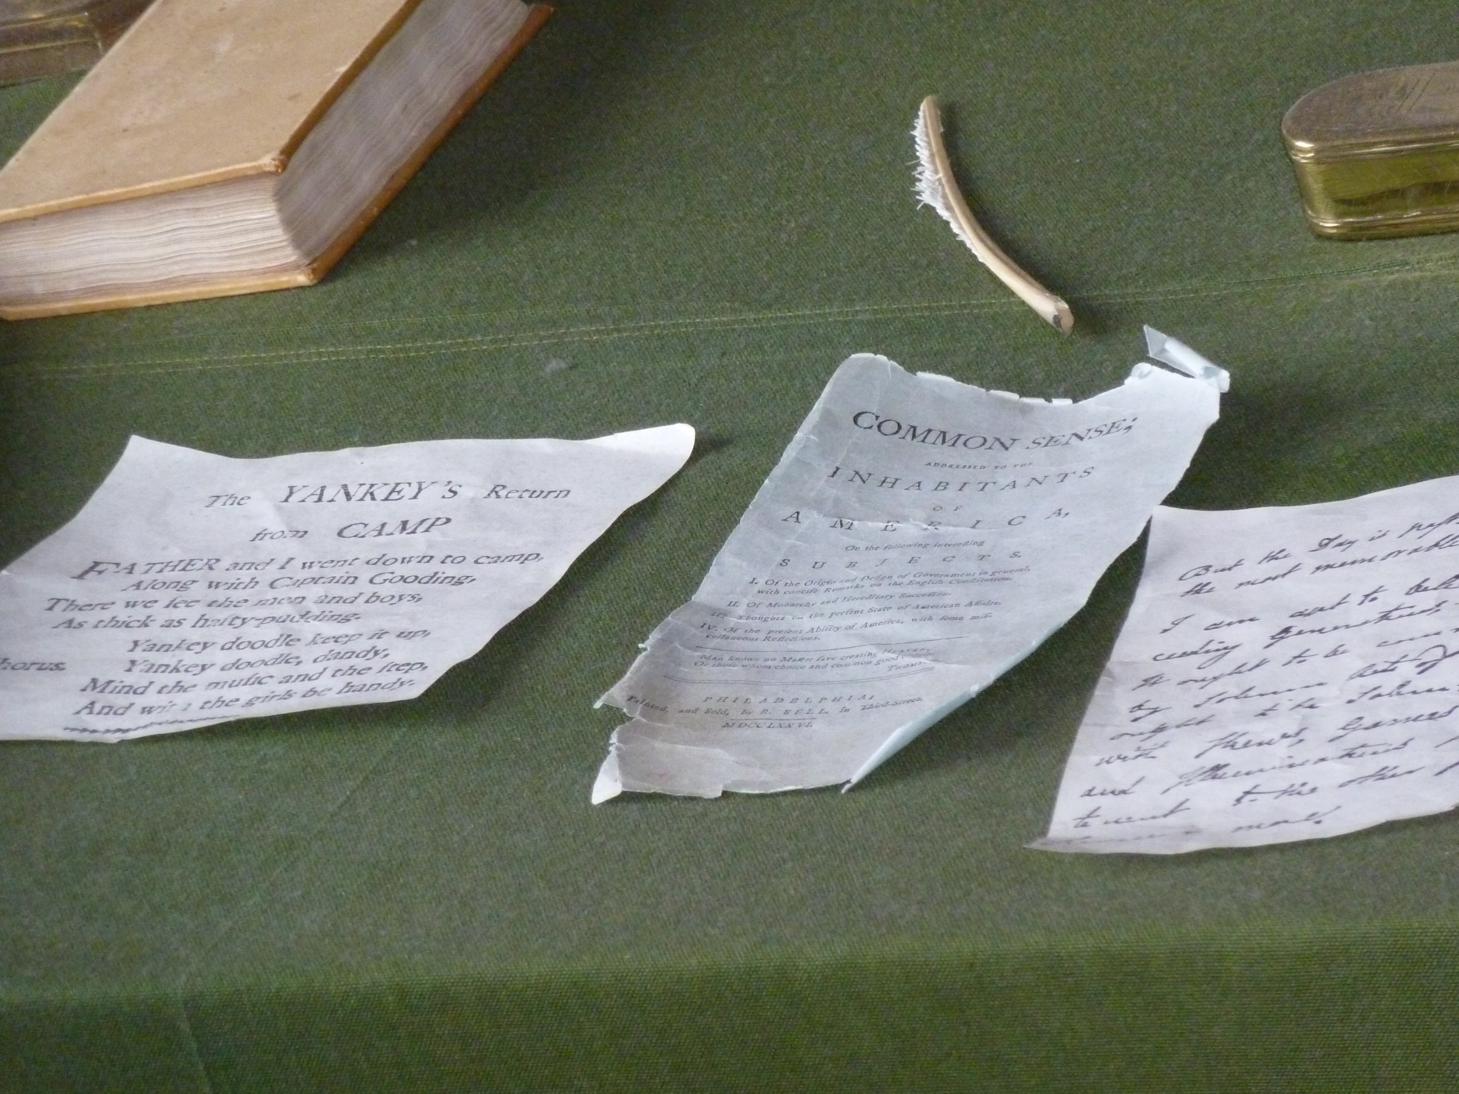 The YANKEY'S Return
from CAMP
FATHER and I went down to camp,
Along with Captain Gooding,
There we ſee the men and boys,
As thick as haſty-pudding.
Yankey doodle keep it up,
horus. Yankey doodle, dandy,
Mind the muſic and the ſtep,
And with the girls be handy.
COMMON SENSE;
ADDRESSED TO THE
INHABITANTS
OF
AMERICA,
On the following intereſting
SUBJECTS.
I. Of the Origin and Deſign of Government in general,
with conciſe Remarks on the Engliſh Conſtitution.
II. Of Monarchy and Hereditary Succeſſion.
III. Thoughts on the preſent State of American Affairs.
IV. Of the preſent Ability of America, with ſome miſ-
cellaneous Reflections.
Man knows no Maſter ſave creating HEAVEN,
Or thoſe whom choice and common good
PHILADELPHIA;
Printed, and Sold, by R. BELL, in Third-Street.
MDCCLXXVI.
But the Day is
the most memorable
I am apt to
ceeding Generations
It ought to be
by solemn Acts of
ought to be solemn
with shews, Games
and Illuminations
to the other
more